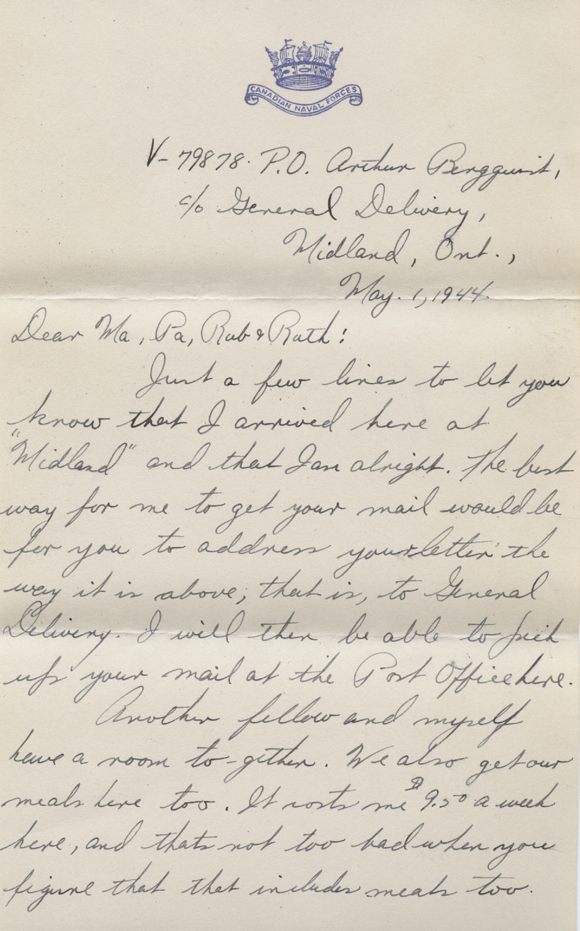 CANADIAN NAVAL FORCES
V-79878. P.O. Arthur Bergquist,
c/o General Delivery,
Midland, Ont.,
May. 1, 1944.
Dear Ma, Pa, Rub & Ruth:
Just a few lines to let you
know that I arrived here at
"Midland" and that I am alright. The best
way for me to get your mail would be
for you to address your letter the
way it is above, that is, to General
Delivery. I will then be able to pick
up your mail at the Post Office here.
Another fellow and myself
have a room to-gether. We also get our
meals here too. It costs me $9.50 a week
here, and thats not too bad when you
figure that that includes meals too.